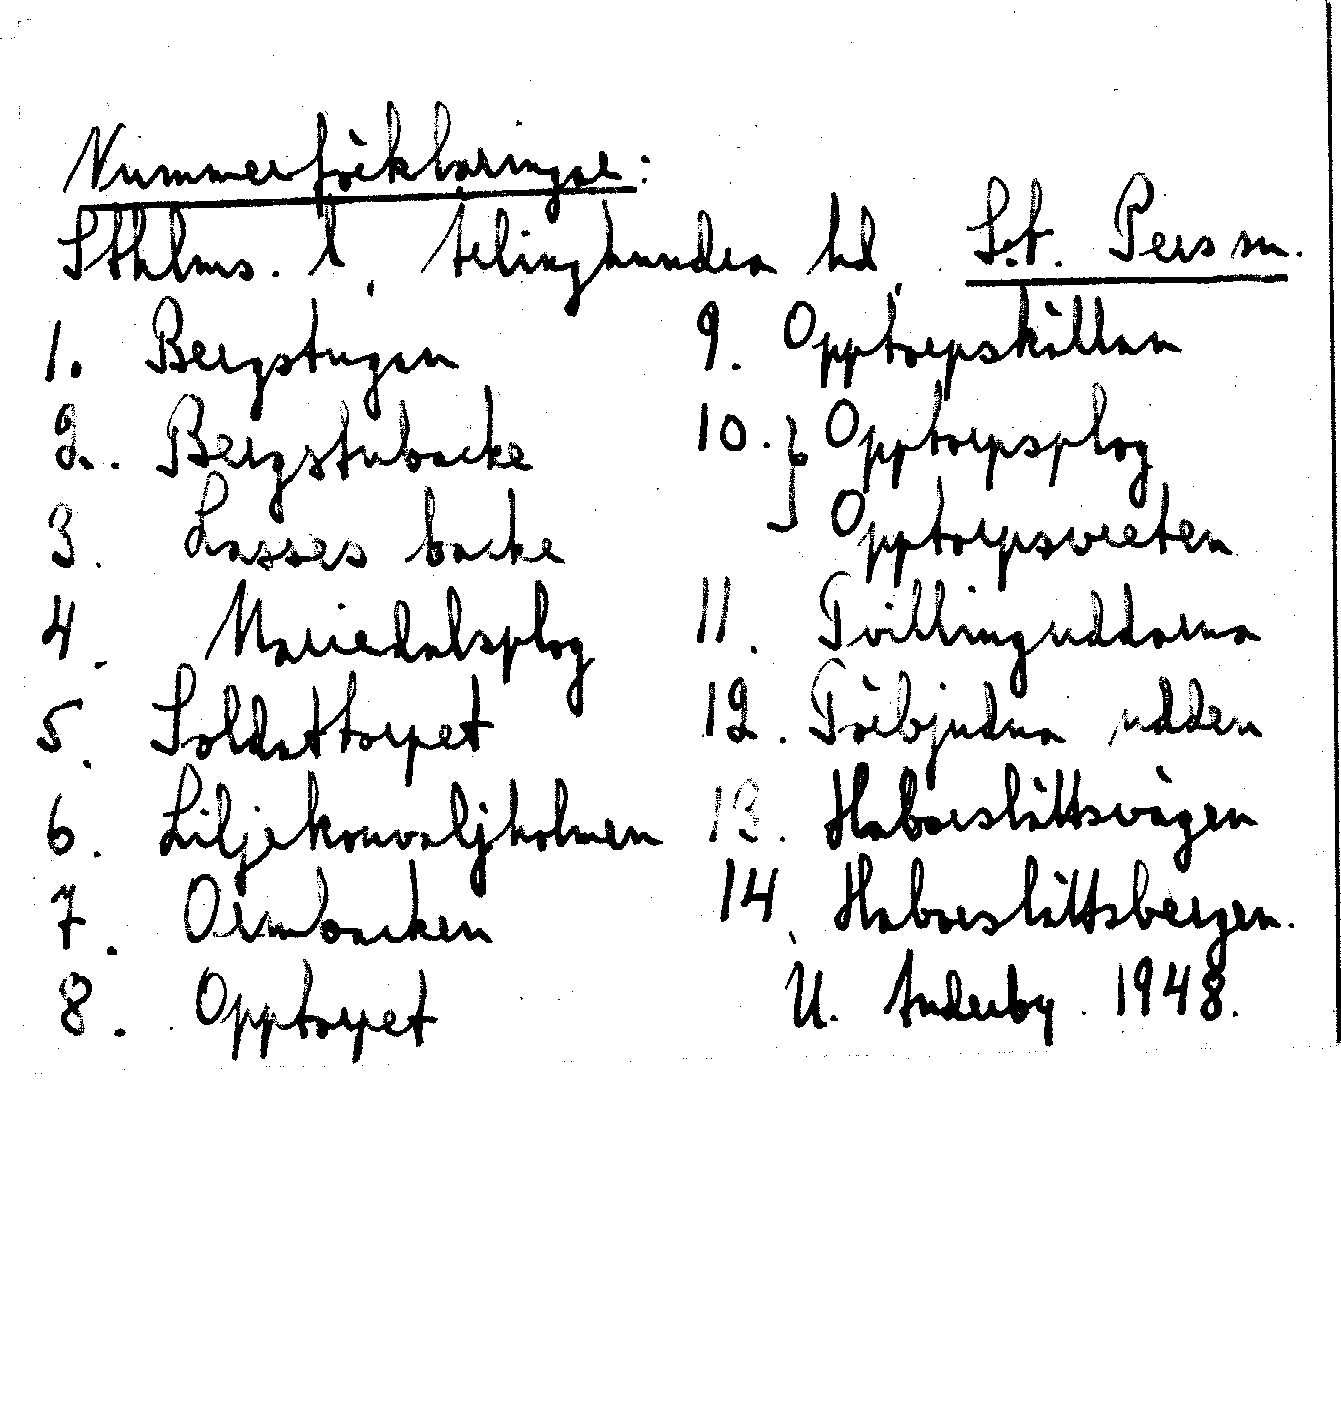 Nummerförklaringar:
Sthlms. l. Ärlinghundra hd. S:t. Pers sn.
1. Bergstugan
2. Bergstubacke
3. Lasses backe
4. Mariedalsplog
5. Soldattorpet
6. Liljekonvaljholmen
7. Ormbacken
8. Opptorpet
9. Opptorpskällan
10. Opptorpsplog
Opptorpsvreten
11. Tvillinguddarna
12. Förbjudna udden
13. Haborslättsvägen
14. Haborslättsbergen.
U. 1948.